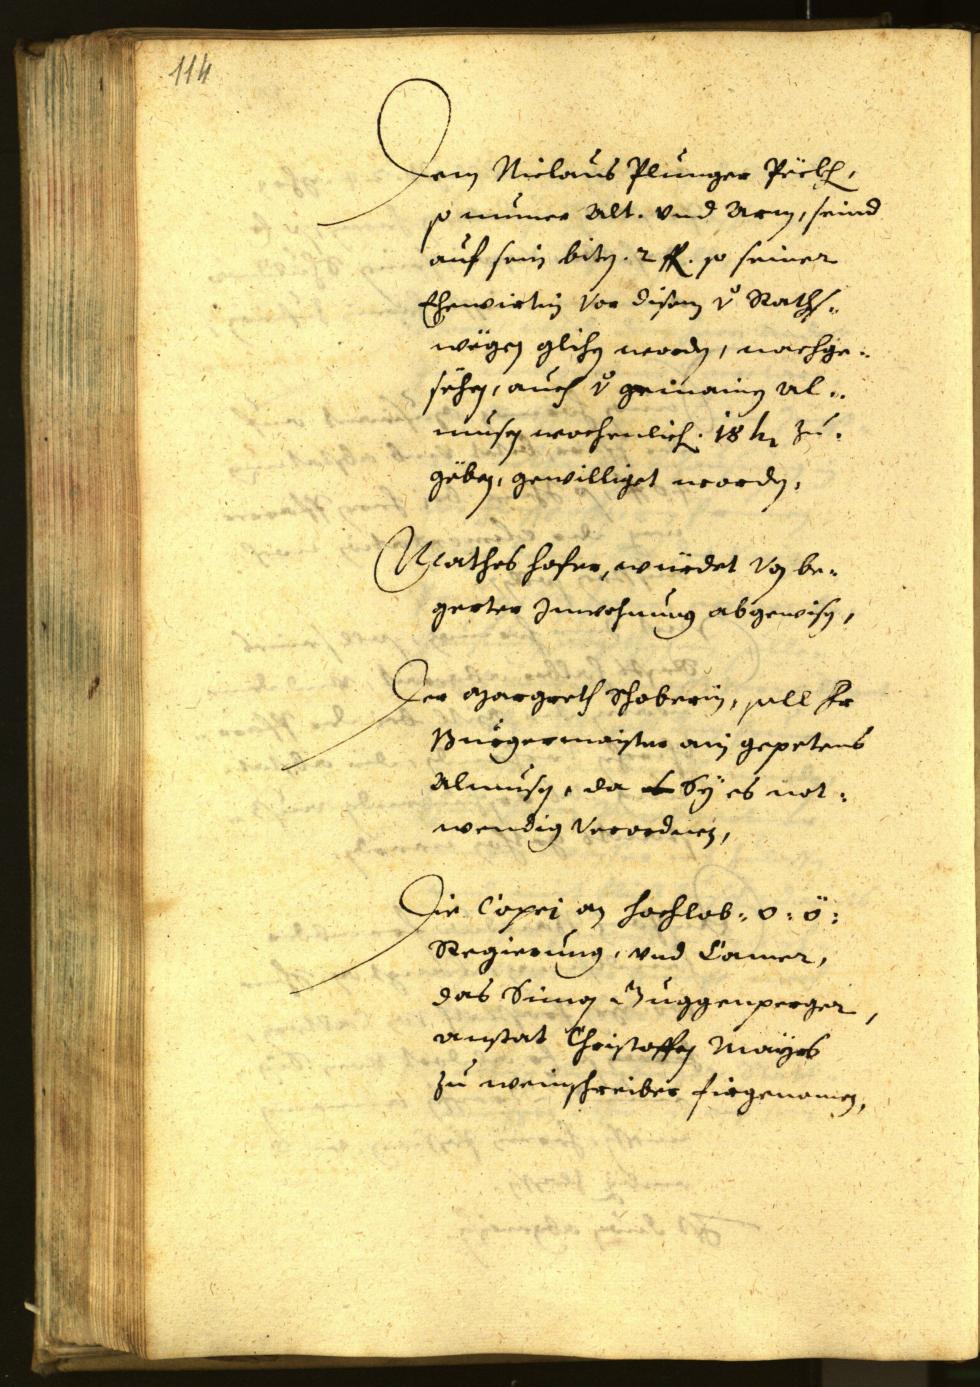 114
Dem Niclaus Plunger Peckh,
so numer Alt. vnd Arm, seind
auf sein biten. 2 fl. so seiner
Ehewirtin vor disem v̊ Raths„
wëgen glihen worden, nachge„
sëhen, auch v̊ gemainen Al„
musen wochenlich. 18 kr zu„
gëben, gewilliget worden,
Mathes hofer, würdet von be„
gerter Inwohnung abgewisen,
Der Margreth Schoberin, soll Hr
Burgermaister ain gepetens
Almusen, da Sÿ es not„
wendig verordnen,
Die Copei an hochlob„ o: ö:
Regierung, vnd Camer,
das Simon Guggenperger,
anstat Christoffen Mayrs
zu weinschreiber firgenomen,